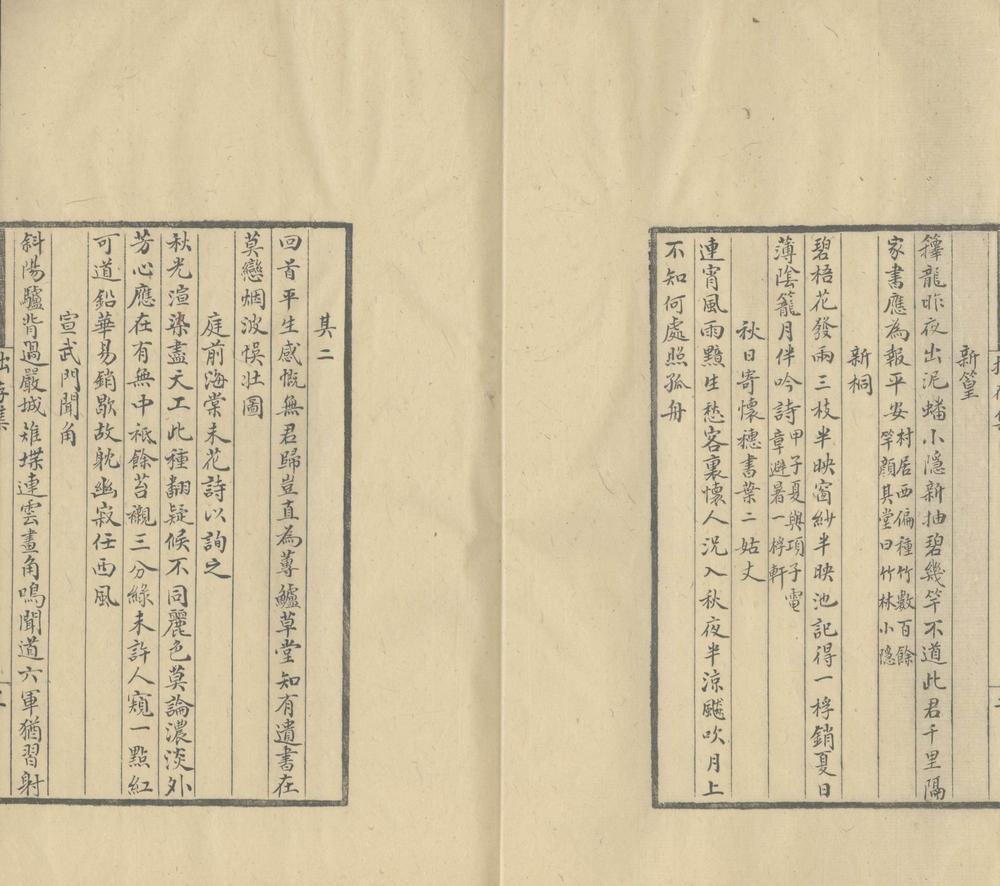 新篁
籜龍昨夜出泥蟠小隱新抽碧幾竿不道此君千里隔
家書應為報平安村居西偏種竹數百餘
竿顏其堂曰竹林小隱
新桐
碧梧花發雨三枝半映窗紗半映池記得一桴銷夏日
薄陰籠月伴吟詩甲子夏與項子電
章避暑一桴軒
秋日寄懷穗書葉二姑丈
連宵風雨黯生愁客裏懷人況入秋夜半涼颸吹月上
不知何處照孤舟
其二
回首平生感慨無君歸豈直為蓴鱸草堂知有遺書在
莫戀烟波悮壯圖
庭前海棠未花詩以詢之
秋光渲染盡天工此種翻疑候不同麗色莫論濃淡外
芳心應在有無中袛餘苔襯三分綠未許人窺一點紅
可道鉛華易銷歇故躭幽寂任西風
宣武門聞角
斜陽驢背過嚴城雉堞連雲畫角鳴聞道六軍猶習射